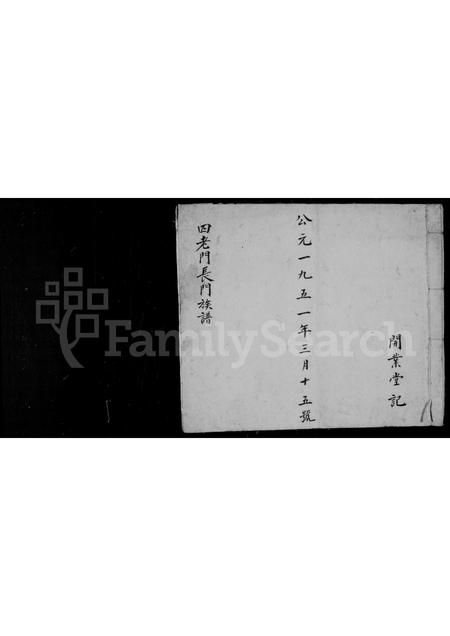 開業堂記
公元一九五一年三月十五號
四老門長門族譜
FamilySearch